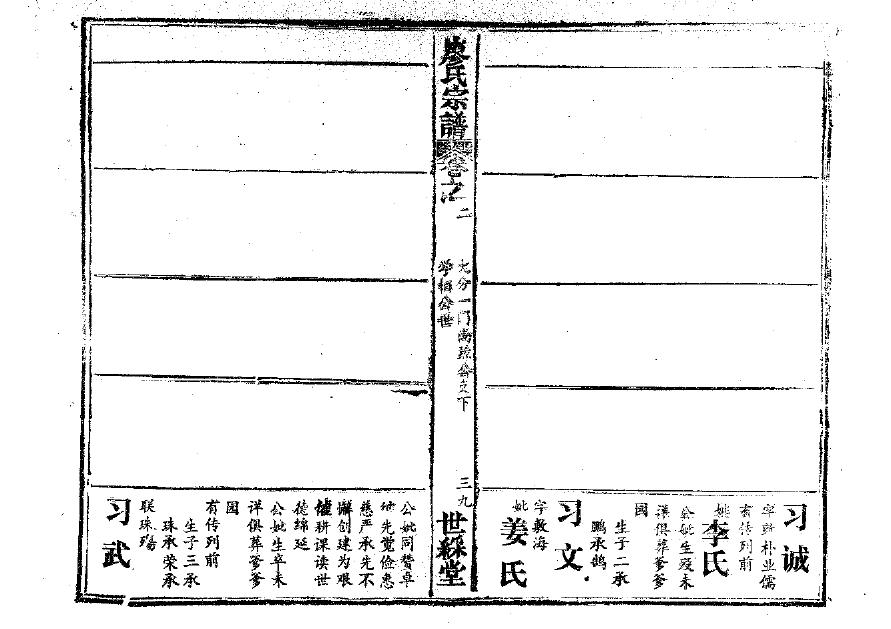 习诚
字
朴业儒
有传列前
妣李氏
公妣生殁未
详俱葬爹爹
园
生子二承
鹏承鹄
习文
字敷海
妣姜氏
廖氏宗谱
卷之
二
大分一门尚
公之下
学
公世
三九
世綵堂
公妣同赞卓
地先觉俭惠
慈严承先不
懈创建为艰
催耕课读世
德绵延
公妣生卒未
详俱葬爹爹
园
有传列前
生子三承
珠承荣承
联珠殇
习武